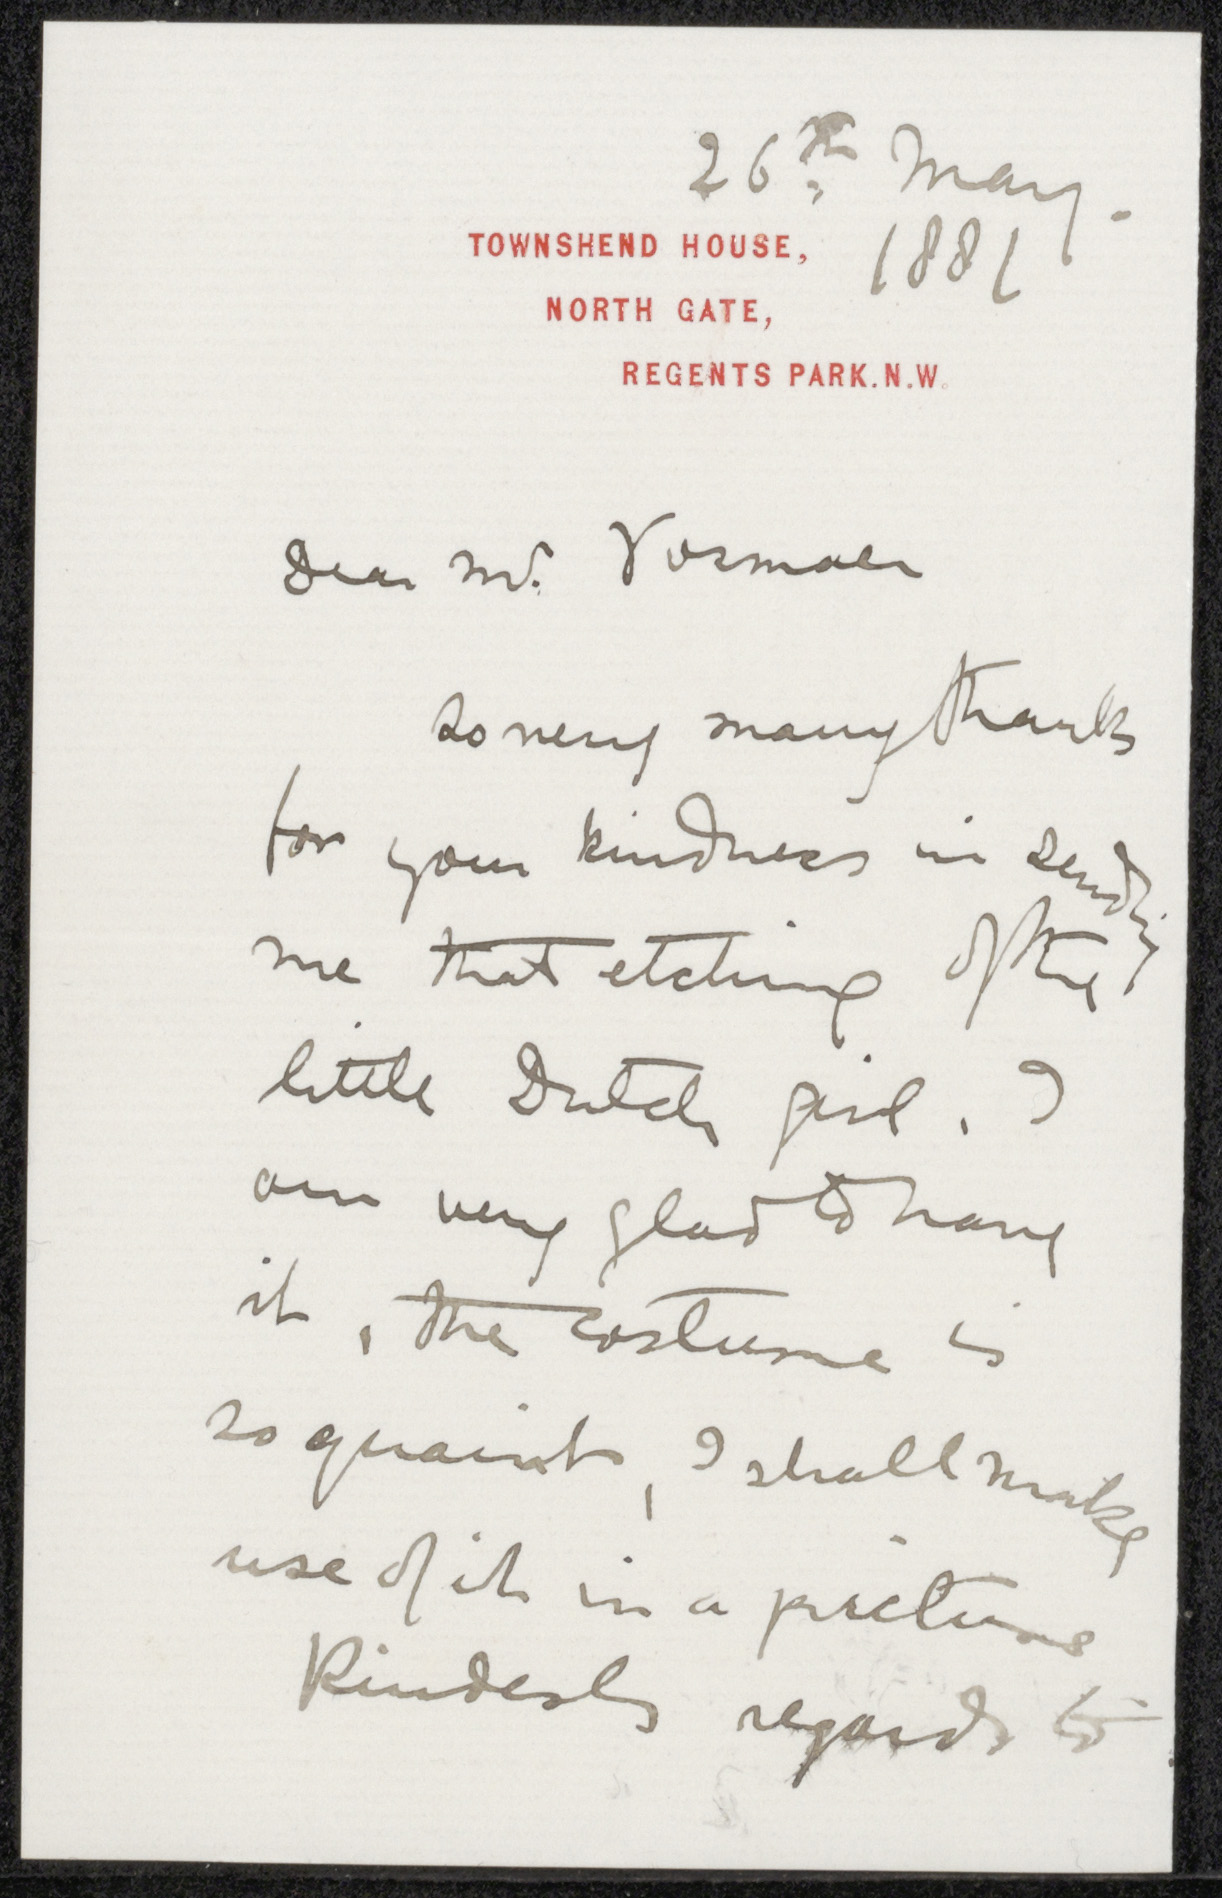 26th May.
1881
TOWNSHEND HOUSE,
NORTH GATE,
REGENTS PARK. N.W.
Dear Mr. Vosmaer
So very many thanks
for your kindness in sending
me that etching of the
little Dutch girl, I
am very glad to have
it, the costume is
so quaint, I shall make
use of it in a picture
Kindest regards to